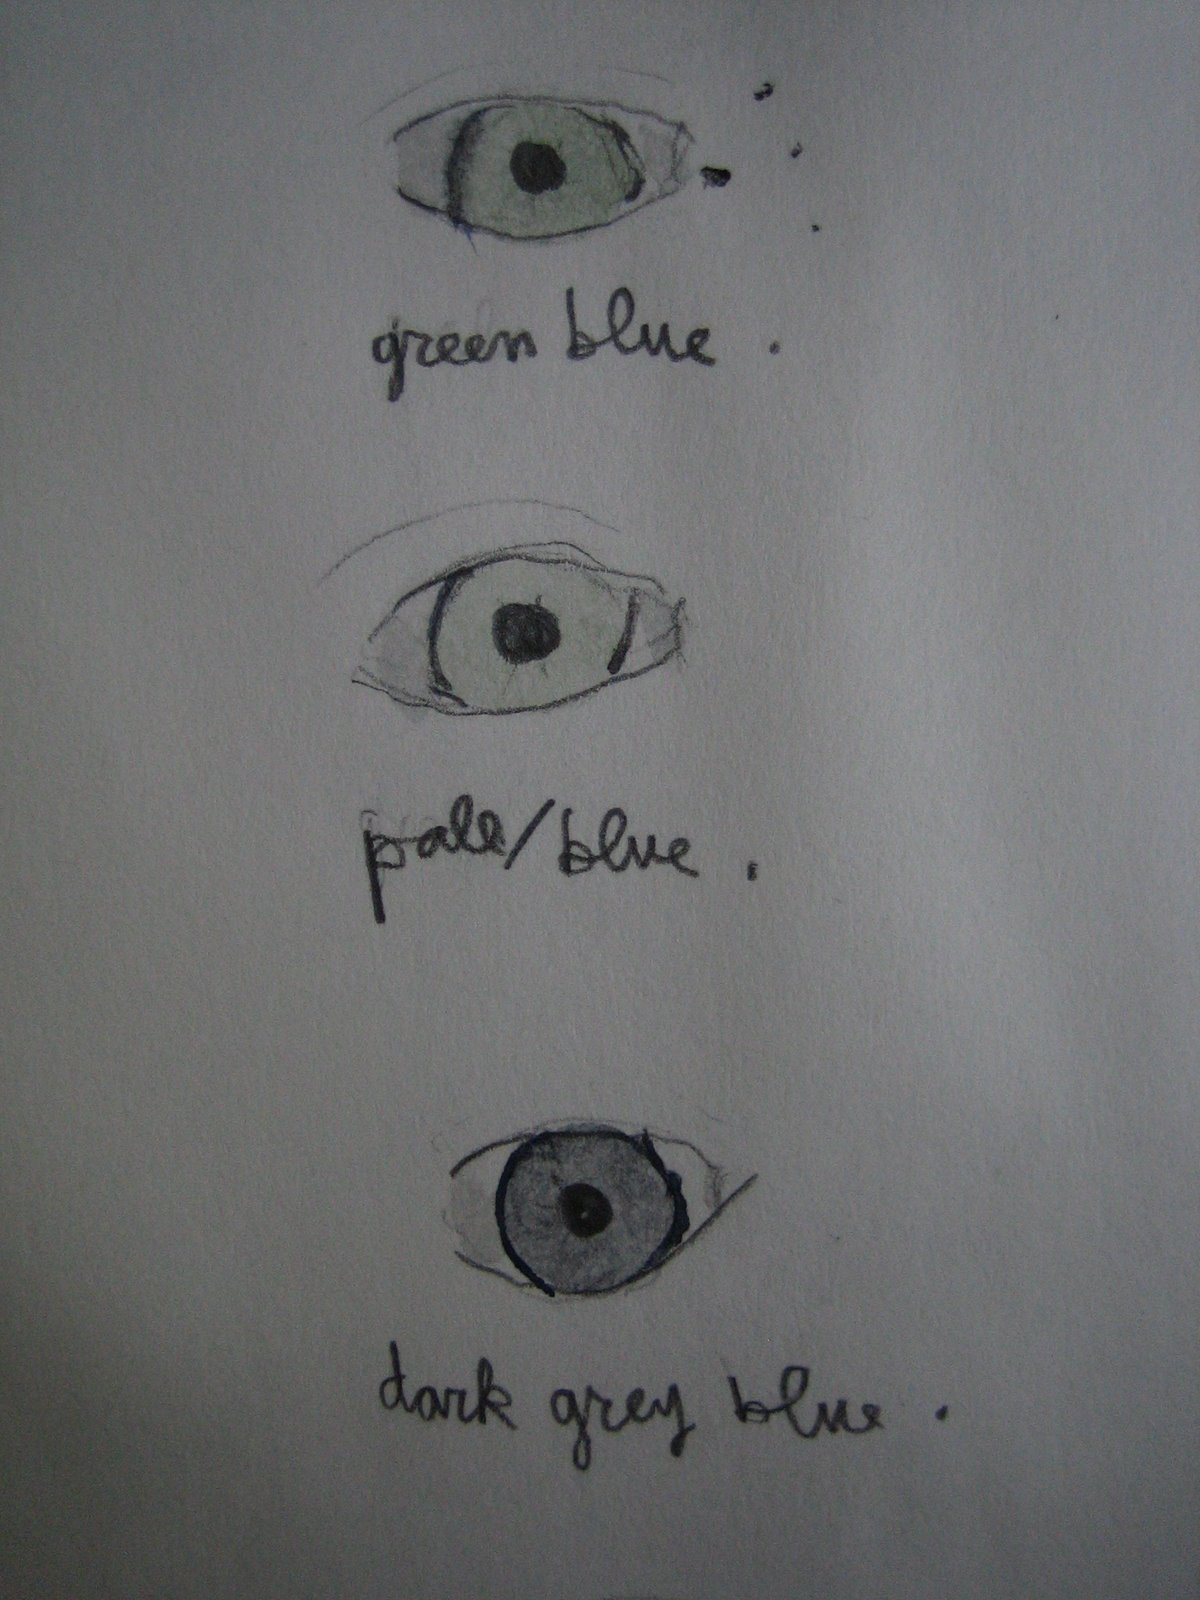 green blue .
pale/blue .
dark grey blue .